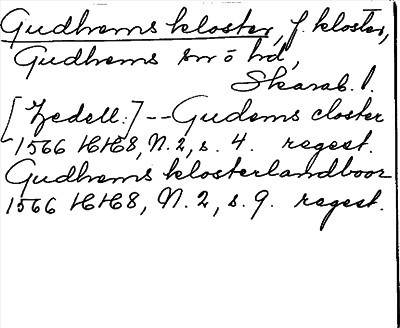 Gudhems kloster, f. kloster,
Gudhems sn o hd,
Skarab. l.
[Zedell:] -- Gudems closter
1566 HH8, N. 2, s. 4. regest.
Gudhems klosterlandboor
1566 HH8, N. 2, s. 9. regest.